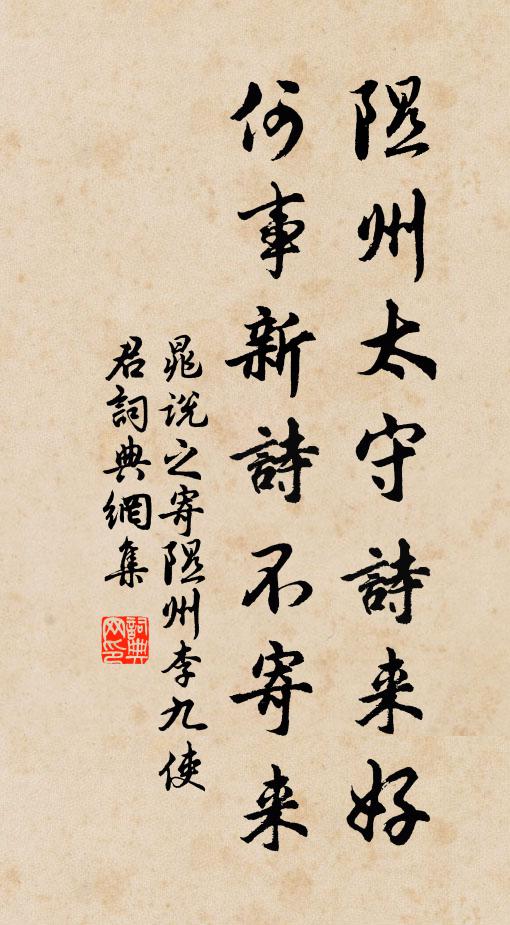 隰州太守詩来好
何事新詩不寄来
晁説之寄隰州李九使
君詞典網集
詞典
网印